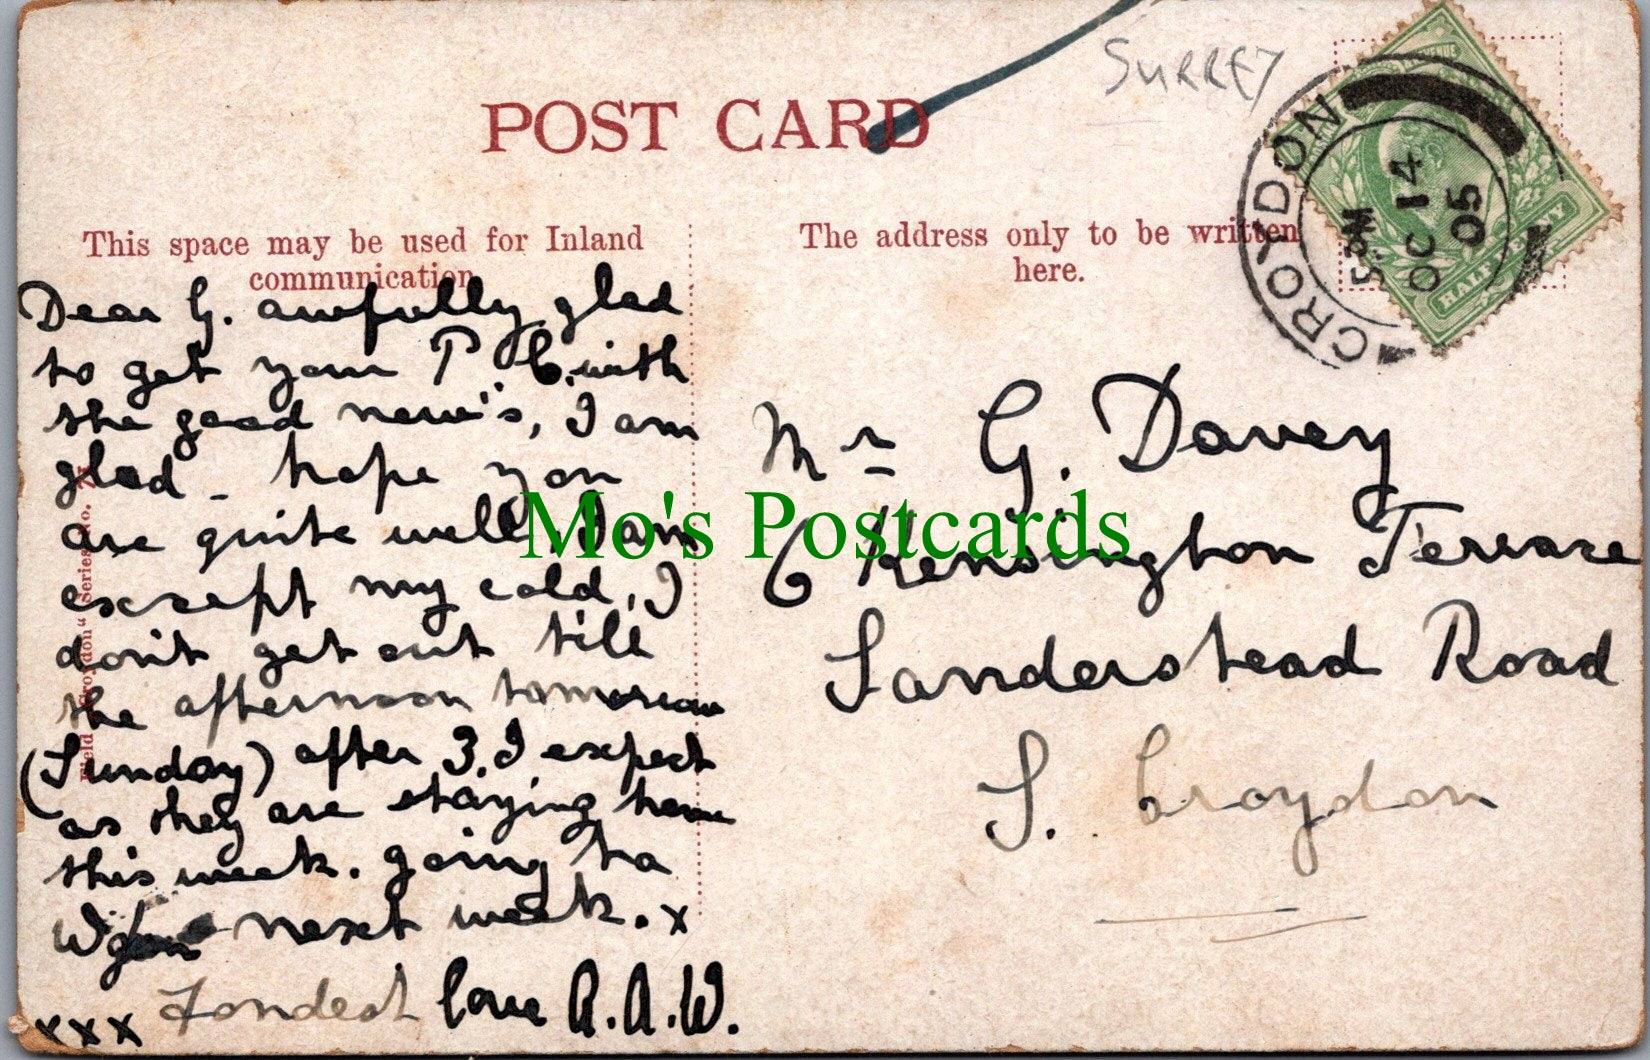 SURREY
POST CARD
CROYDON
5.PM
OC 14
05
HALFPENNY
This space may be used for Inland
communication
The address only to be written
here.
Dear G. awfully glad
to get your P.C. with
the good new's, I am
glad - hope you
are quite well, I am
except my cold, I
don't get out till
the afternoon tomorrow
(Sunday) after 3. I expect
as they are staying home
this week. going to
next week. x
Fondest love A.A.W.
xxx
Mr G. Davey
6 Kensington Terrace
Sanderstead Road
S. Croydon
Field "Croydon" Series No.
Mo's Postcards